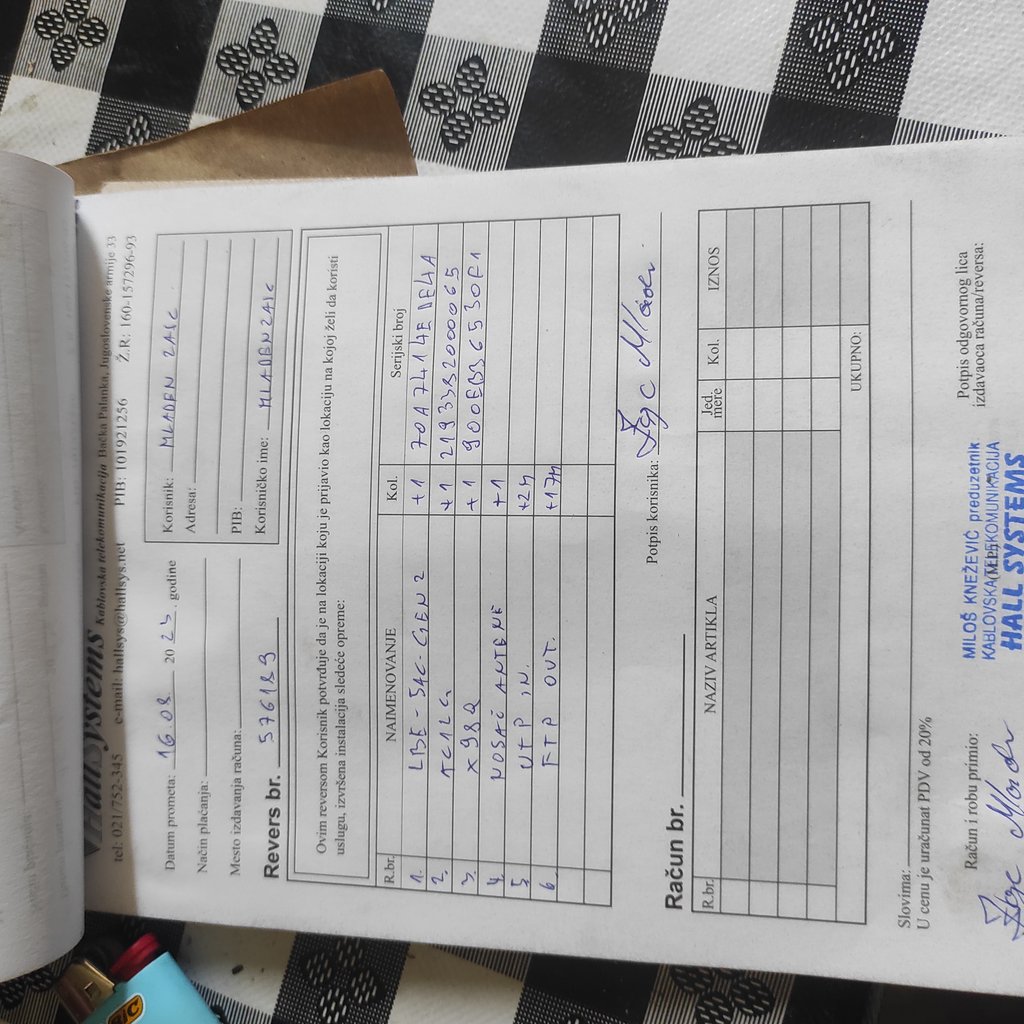 HallSystems Kablovska telekomunikacija Bačka Palanka, Jugoslovenske armije 33
tel: 021/752-345 e-mail: hallsys@hallsys.net PIB: 101921256 Ž.R: 160-157296-93
Datum prometa: 16 08 20 23. godine
Način plaćanja:
Mesto izdavanja računa:
Revers br. 576189
Korisnik: MLADEN ZAIC
Adresa:
PIB:
Korisničko ime: MLADENZAIC
Ovim reversom Korisnik potvrđuje da je na lokaciji koju je prijavio kao lokaciju na kojoj želi da koristi
uslugu, izvršena instalacija sledeće opreme:
R.br. NAIMENOVANJE Kol. Serijski broj
1. LBE-5AC-GEN 2 +1 70A7414EDE4A
2. TC1LG +1 2193332000065
3. X98Q +1 900EB36530F1
4. NOSAČ ANTENE +1
5 UTP IN. +2m
6. FTP OUT. +17m
Potpis korisnika:
Račun br.
R.br. NAZIV ARTIKLA Jed. mere Kol. IZNOS
UKUPNO:
Slovima:
U cenu je uračunat PDV od 20%
Račun i robu primio:
(M.P.)
Potpis odgovornog lica
izdavaoca računa/reversa:
MILOŠ KNEŽEVIĆ preduzetnik
KABLOVSKA TELEKOMUNIKACIJA
HALL SYSTEMS
BIC